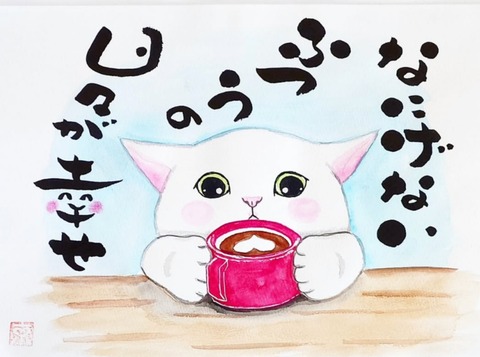 なにげない
ふつうの
日々が幸せ